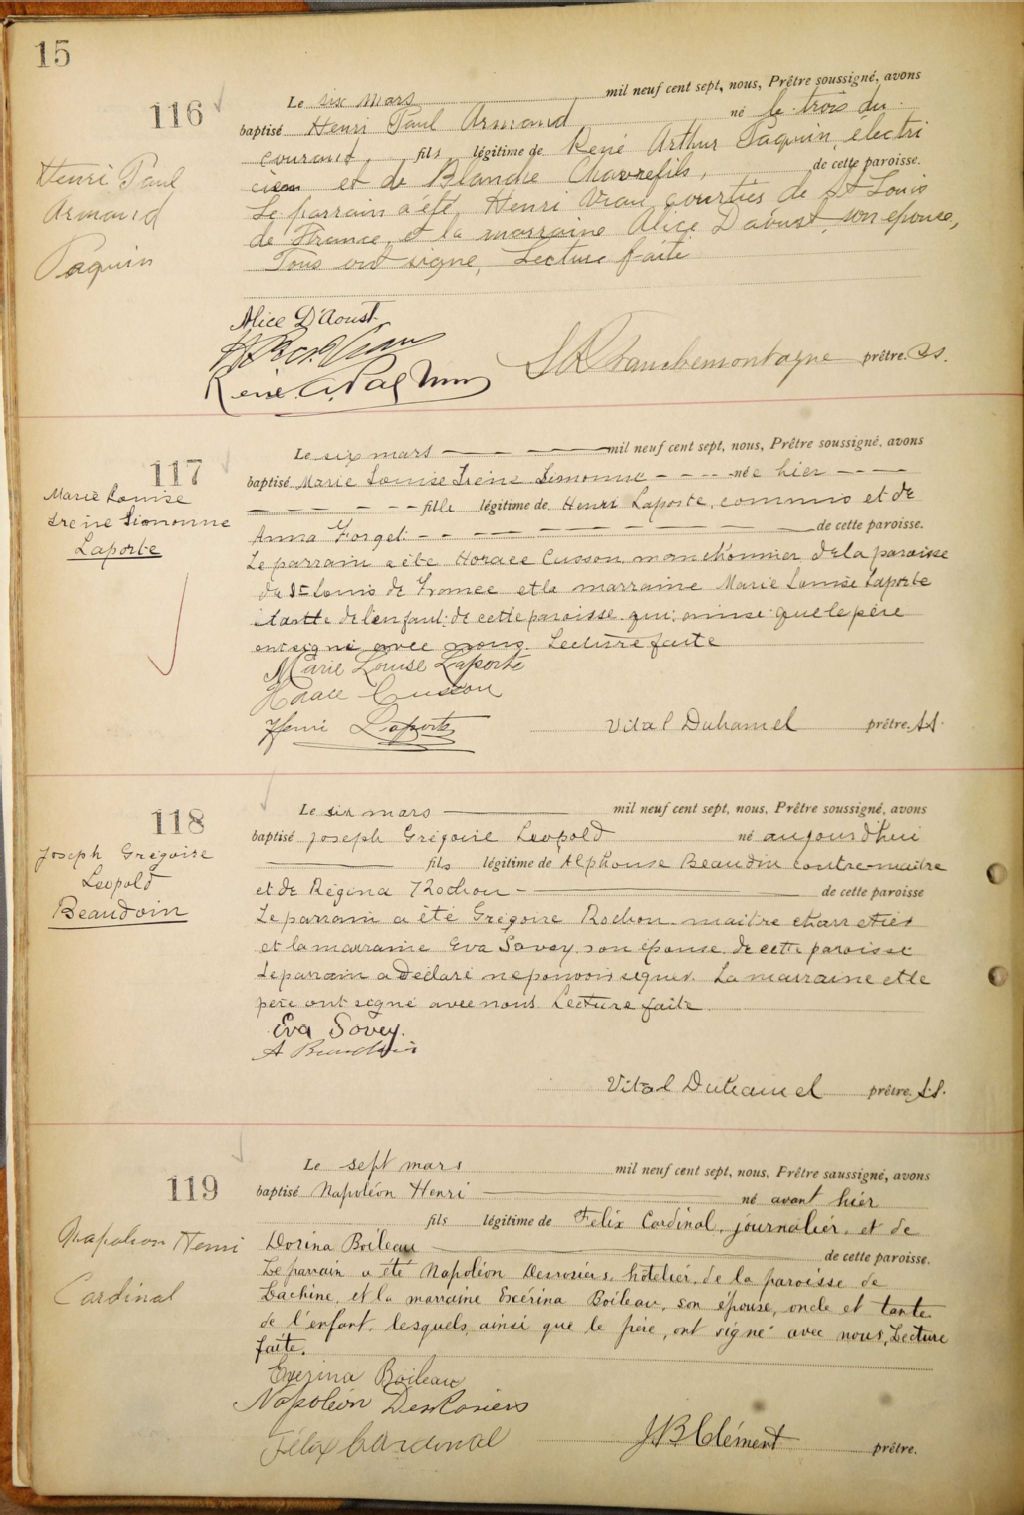 15
116
Henri Paul
Armand
Paquin
Le six mars mil neuf cent sept, nous, Prêtre soussigné, avons
baptisé Henri Paul Armand né le trois du
courant, fils légitime de René Arthur Paquin, électri
cien et de Blanche Chavrefils, de cette paroisse.
Le parrain a été Henri Viau, courtier de St Louis
de France, et la marraine Alice Daoust, son épouse,
Tous ont signé, Lecture faite
Alice D'Aoust
Viau
René A. Paquin
Franchemontagne prêtre. s.s.
117
Marie Louise
Irene Simonne
Laporte
Le six mars — — — — mil neuf cent sept, nous, Prêtre soussigné, avons
baptisé Marie Louise Irene Simonne - - - - née hier - - —
— - - — - - fille légitime de Henri Laporte, commis et de
Anna Forget - - — — — — — — — — de cette paroisse.
Le parrain a été Horace Cusson, manchonnier de la paroisse
de St Louis de France et la marraine Marie Louise Laporte
tante de l'enfant de cette paroisse qui ainsi que le père
ont signé avec nous. Lecture faite
Marie Louise Laporte
Horace Cusson
Henri Laporte
Vital Duhamel prêtre. s.s.
118
Joseph Grégoire
Leopold
Beaudoin
Le six mars — mil neuf cent sept, nous, Prêtre soussigné, avons
baptisé Joseph Grégoire Leopold né aujourd'hui
— fils légitime de Alphonse Beaudin contre-maitre
et de Régina Rochon - — de cette paroisse
Le parrain a été Grégoire Rochon maitre charretier
et la marraine Eva Sovey son épouse de cette paroisse
Le parrain a déclaré ne pouvoir signer. La marraine et le
père ont signé avec nous Lecture faite
Eva Sovey.
A Beaudoin
Vital Duhamel prêtre. s.s.
119
Napoleon Henri
Cardinal
Le sept mars mil neuf cent sept, nous, Prêtre saussigné, avons
baptisé Napoléon Henri — né avant hier
fils légitime de Felix Cardinal, journalier, et de
Dorina Boileau — de cette paroisse.
Le parrain a été Napoléon Desrosiers, hôtelier, de la paroisse de
Lachine, et la marraine Exérina Boileau, son épouse, oncle et tante
de l'enfant, lesquels, ainsi que le père, ont signé avec nous, Lecture
faite.
Exérina Boileau
Napoléon DesRosiers
Félix Cardinal
J B Clément prêtre.